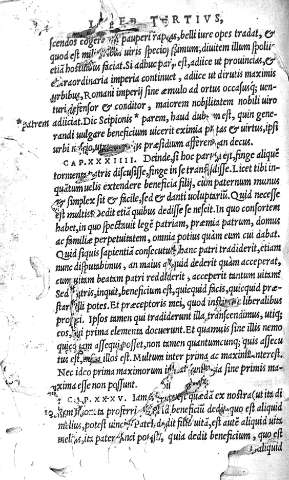 LIBER TERTIVS,
scendos cogere pauperi rapias, belli iure opes tradat, &
quod est viris speciosissimum, diuitem illum spolijs
etiā hostilibus faciat. Si adhuc parū est, adiice ut prouincias, &
extraordinaria imperia contineat, adiice ut dirutis maximis
urbibus, Romani imperij sine æmulo ad ortus occasusq; uen-
turi defensor & conditor, maiorem nobilitatem nobili uiro
* patrem adiiciat. Dic Scipionis * parem, haud dubium est, quin gene-
randi uulgare beneficium uicerit eximia pietas & uirtus, ipsi
urbi præsidium afferens an decus.
CAP. XXXIIII. Deinde, si hoc parū est, finge aliquē
tormenta patris discussisse, finge in se transtulisse. Licet tibi in-
quātum uelis extendere beneficia filij, cùm paternum munus
& simplex sit & facile, sed & danti uoluptariū. Quid necesse
est multis dedit etiā quibus dedisse se nescit. In quo consortem
habet, in quo spectauit legē patriam, præmia patrum, domus
ac familiæ perpetuitatem, omnia potius quàm eum cui dabat.
Quid si quis sapientiā consecutus, hanc patri tradiderit, etiam
nunc disputabimus, an maius aliquid dederit quàm acceperat,
cum uitam beatam patri reddiderit, acceperit tantum uitam?
Sed patris, inquit, beneficium est, quicquid facis, quicquid præ-
stare illi potes. Et præceptoris mei, quod institutis liberalibus
profeci. Ipsos tamen qui tradiderunt illa, transcendimus, utiq;
eos, qui prima elementa docuerunt. Et quamuis sine illis nemo
quicquam assequi posset, non tamen quantumcunq; quis assecu-
tus est, illos est. Multum inter prima ac maxima interest.
Nec ideo prima maximorum instar quia sine primis ma-
xima esse non possunt.
CAP. XXXV. est quædā ex nostra (ut ita di
cam) proferri beneficiū dedit, quo est aliquid
melius, potest uinci. Pater dedit filio uitā, est autē aliquid uita
melius, ita pater uinci potest, quia dedit beneficium, quo est
aliquid